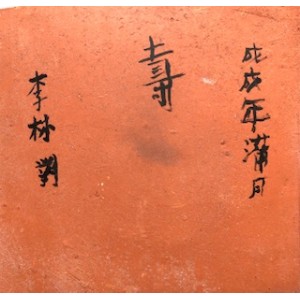 戊戌年蒲月
壽
李林